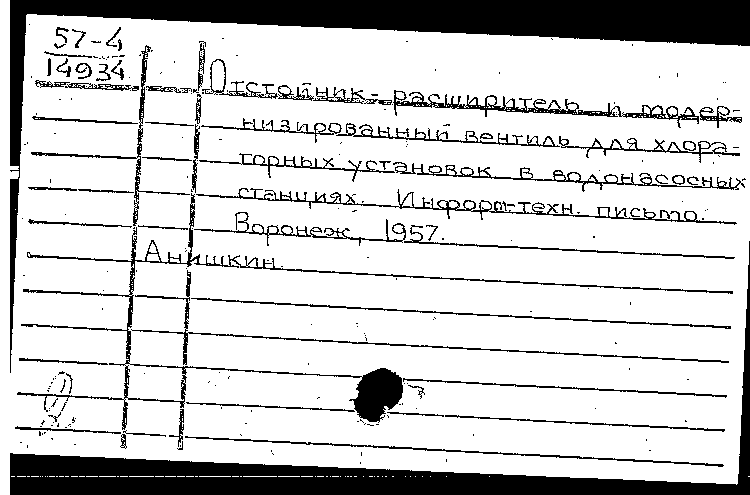 57-4
14934
Отстойник-расширитель и модер-
низированный вентиль для хлора-
торных установок в водонасосных
станциях. Информ-техн. письмо.
Воронеж, 1957.
Анишкин.